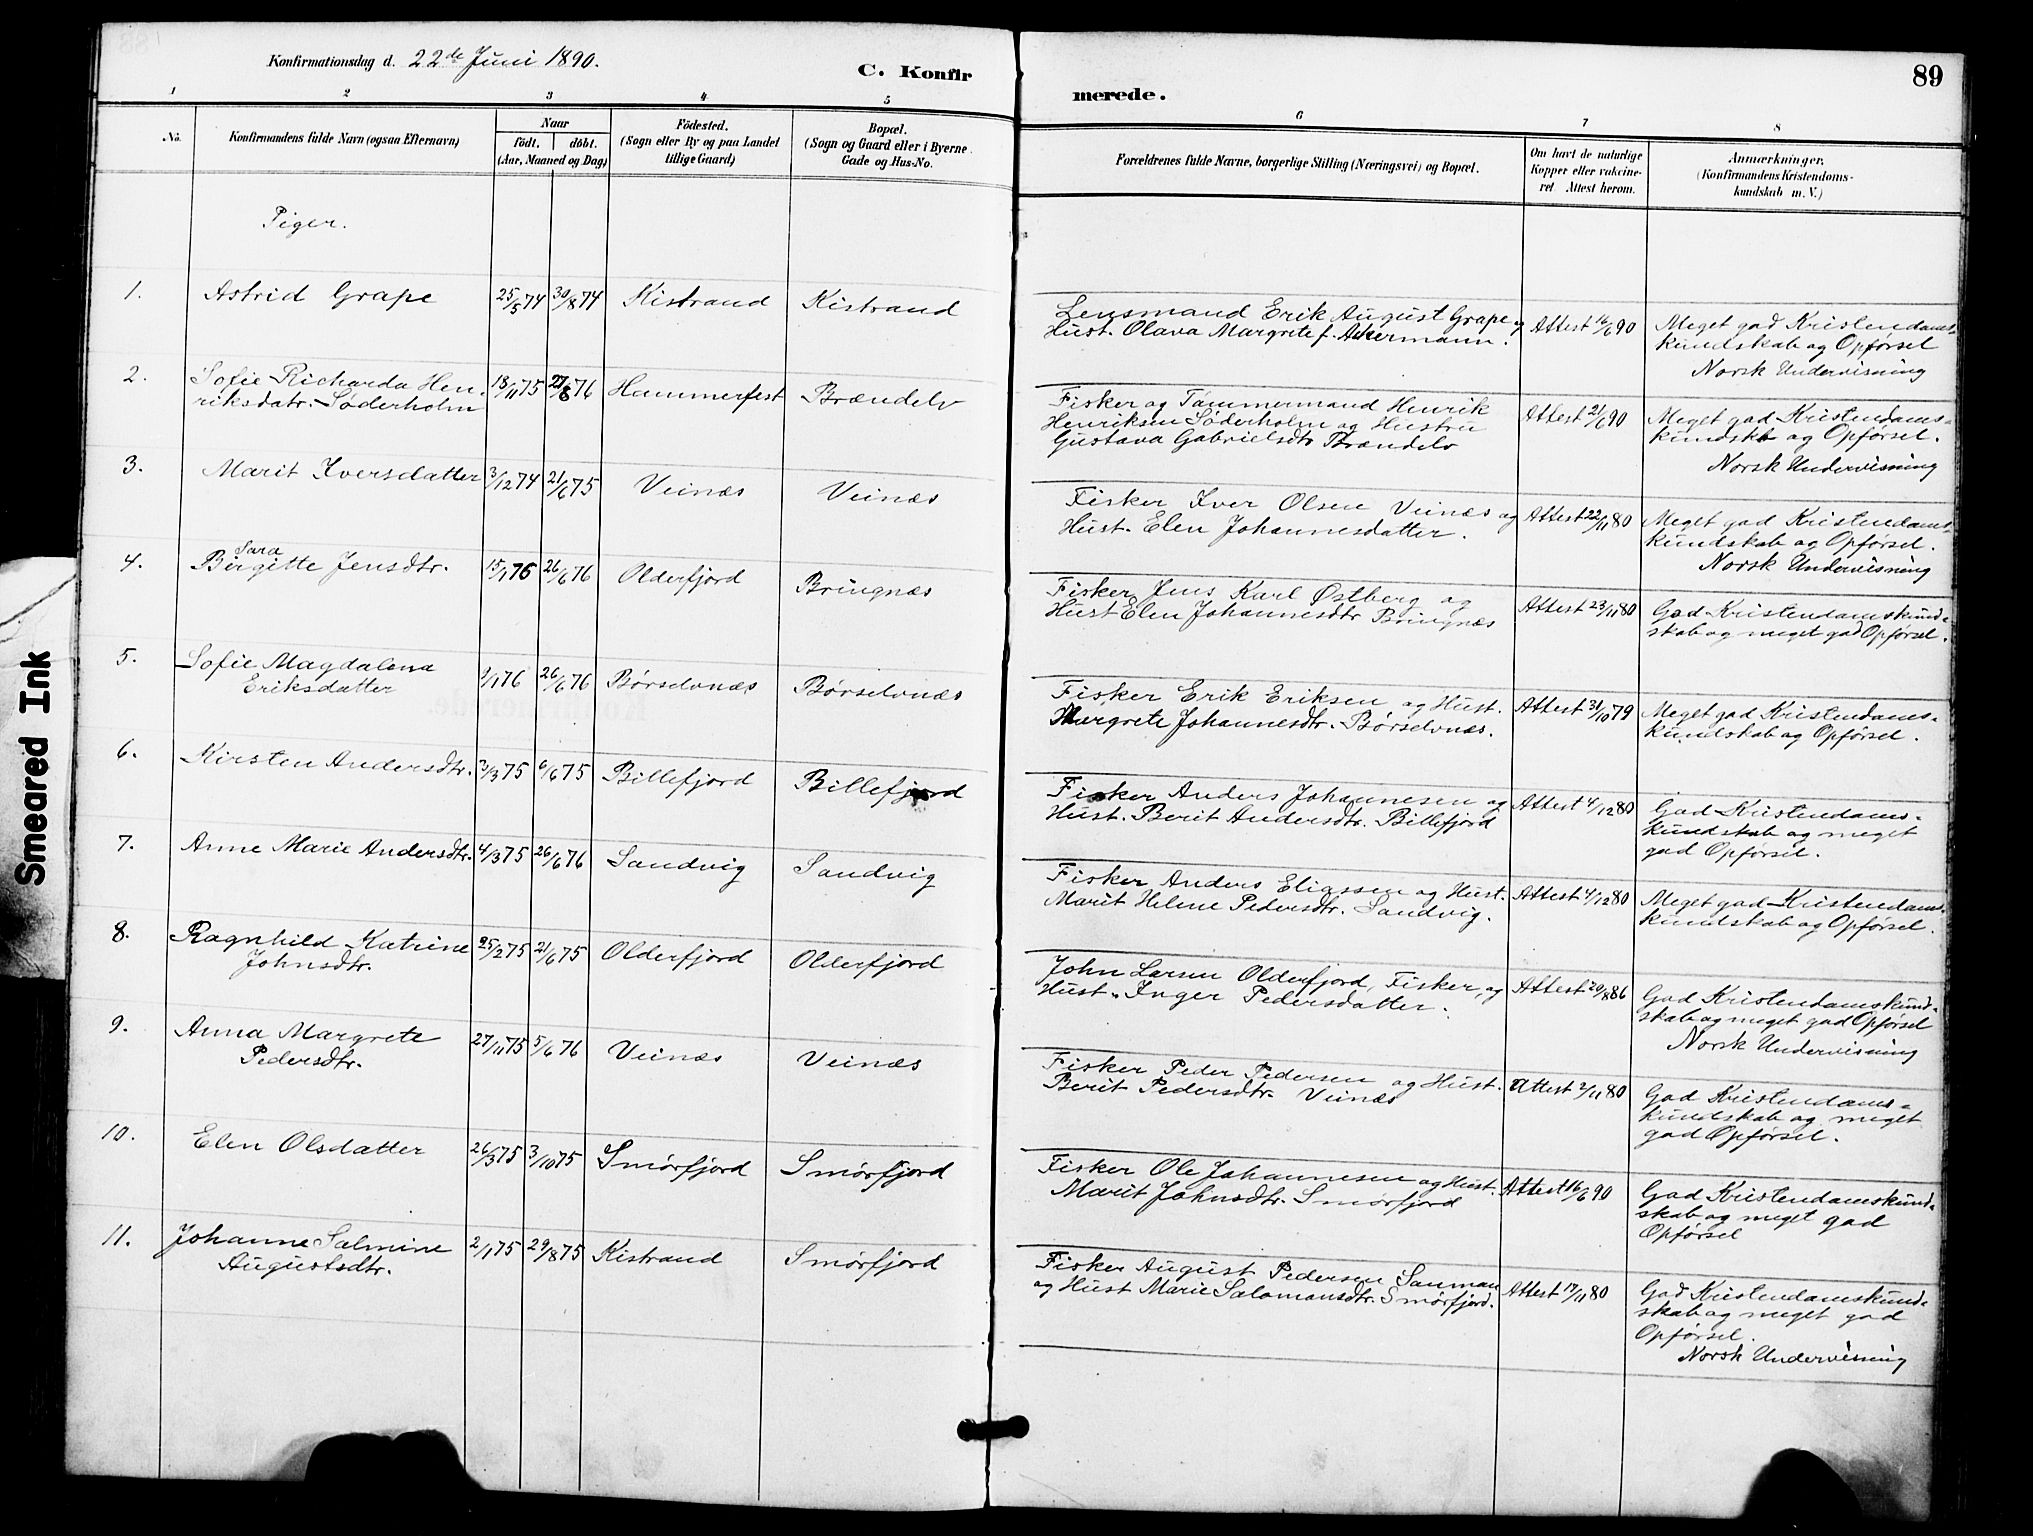 Konfirmationsdag d. 22de Juni 1890.
C. Konfir
merede.
89
1 2 3 4 5 6 7 8
No.
Konfirmandens fulde Navn (ogsaa Efternavn)
Naar
født. døbt.
(Aar, Maaned og Dag)
Fødested.
(Sogn eller By og paa Landet
tillige Gaard)
Bopæl.
(Sogn og Gaard eller i Byerne
Gade og Hus-No.
Forældrenes fulde Navne, borgerlige Stilling (Næringsvei) og Bopæl.
Om havt de naturlige
Kopper eller vakcine-
ret Attest herom.
Anmærkninger.
(Konfirmandens Kristendoms-
kundskab m. V.)
Piger.
1. Astrid Grape 25/5 74 30/8 74 Kistrand Kistrand
Lensmand Erik August Grape og
Hust. Olava Margrete f. Akermann.
Attest 16/6 90
Meget god Kristendoms-
kundskab og Opførsel
Norsk Undervisning
2. Sofie Richarda Hen-
riksdatr. Søderholm
18/11 75 27/8 76 Hammerfest Brændelv
Fisker og Tømmermand Henrik
Henriksen Søderholm og Hustru
Gustava Gabrielsdtr Brændelv
Attest 21/6 90
Meget god Kristendoms-
kundskb og Opførsel.
Norsk Undervisning
3. Marit Iversdatter 3/12 74 21/6 75 Veinæs Veinæs
Fisker Iver Olsen Veinæs og
Hust. Elen Johannesdatter.
Attest 22/11 80
Meget god Kristendoms-
kundskab og Opførsel.
Norsk Undervisning
Sara
4. Birgitte Jensdtr. 15/1 76 26/6 76 Olderfjord Bringnæs
Fisker Jens Karl Østberg og
Hust Elen Johannesdtr Bringnæs
Attest 23/11 80
God Kristendomskund-
skab og meget god Opførsel.
5. Sofie Magdalena
Eriksdatter
/1 76 26/6 76 Børselvnæs Børselvnæs
Fisker Erik Eriksen og Hust.
Margrete Johannesdtr. Børselvnæs.
Attest 31/10 79
Meget god Kristendoms-
kundskab og Opførsel.
6. Kirsten Andersdtr. 3/3 75 6/6 75 Billefjord Billefjord
Fisker Anders Johannesen og
Hust. Berit Andersdtr. Billefjord
Attest 4/12 80
God Kristendoms-
kundskab og meget
god Opførsel.
7. Anne Marie Andersdtr. 4/3 75 26/6 76 Sandvig Sandvig
Fisker Anders Eliassen og Hust.
Marit Helene Pedersdtr. Sandvig.
Attest 4/12 80
Meget god Kristendoms-
kundskab og Opførsel.
8. Ragnhild Katrine
Johnsdtr.
25/2 75 21/6 75 Olderfjord Olderfjord
John Larsen Olderfjord, Fisker, og
Hust. Inger Pedersdatter.
Attest 20/8 86
God Kristendomskund-
skab og meget god Opførsel
Norsk Undervisning
9. Anna Margrete
Pedersdtr.
27/11 75 5/6 76 Veinæs Veinæs
Fisker Peder Pedersen og Hust.
Berit Pedersdtr. Veinæs
Attest 2/11 80
God Kristendoms-
kundskab og meget
god Opførsel.
10. Elen Olsdatter 26/3 75 3/10 75 Smørfjord Smørfjord
Fisker Ole Johannesen og Hust.
Marit Johnsdtr. Smørfjord
Attest 16/6 90
God Kristendomskund-
skab og meget god
Opførsel
11. Johanne Salmine
Augustsdtr.
2/1 75 29/8 75 Kistrand Smørfjord
Fisker August Pedersen Sauman
og Hust Marie Salomonsdtr. Smørfjord.
Attest 17/11 80
God Kristendomskund-
skab og meget god
Opførsel.
Norsk Undervisning
Smeared Ink